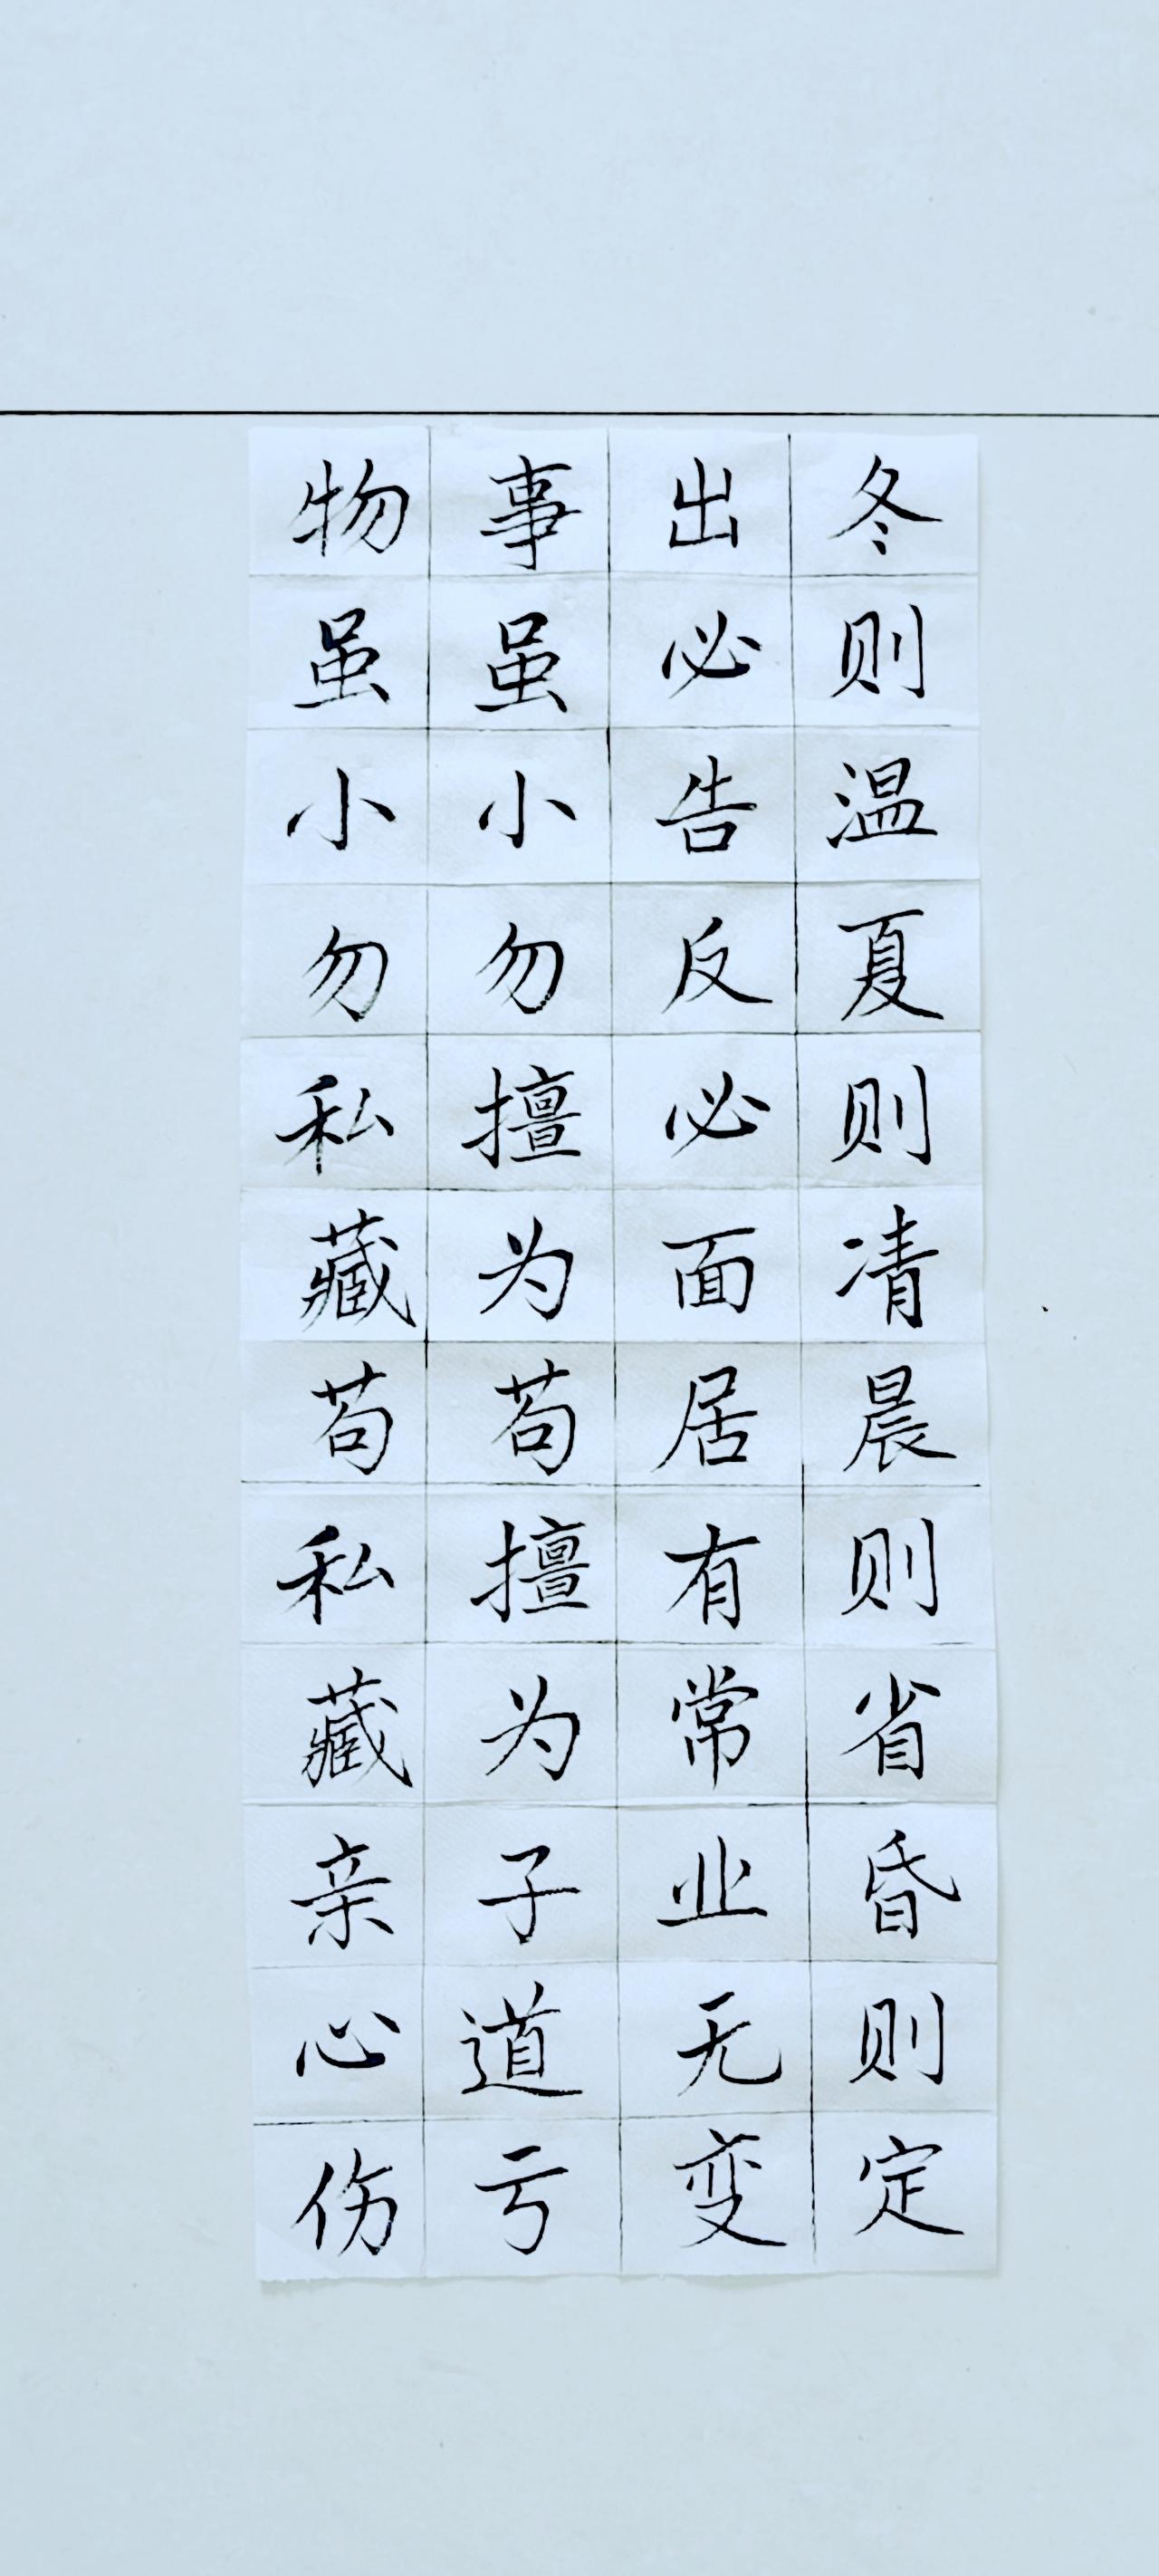 冬则温夏则凊晨则省昏则定
出必告反必面居有常业无变
事虽小勿擅为苟擅为子道亏
物虽小勿私藏苟私藏亲心伤